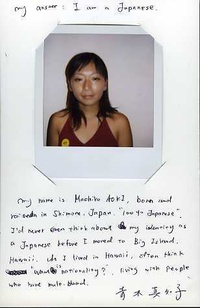 my answer: I am a Japanese.
my name is Machiko AOKI, born and
raised in Shimane, Japan. "100% Japanese".
I'd never even think about my identity as
a Japanese before I moved to Big Island,
Hawaii. As I lived in Hawaii, often think
"what is nationality?", living with people
who have mult-blood.
青木 真知子